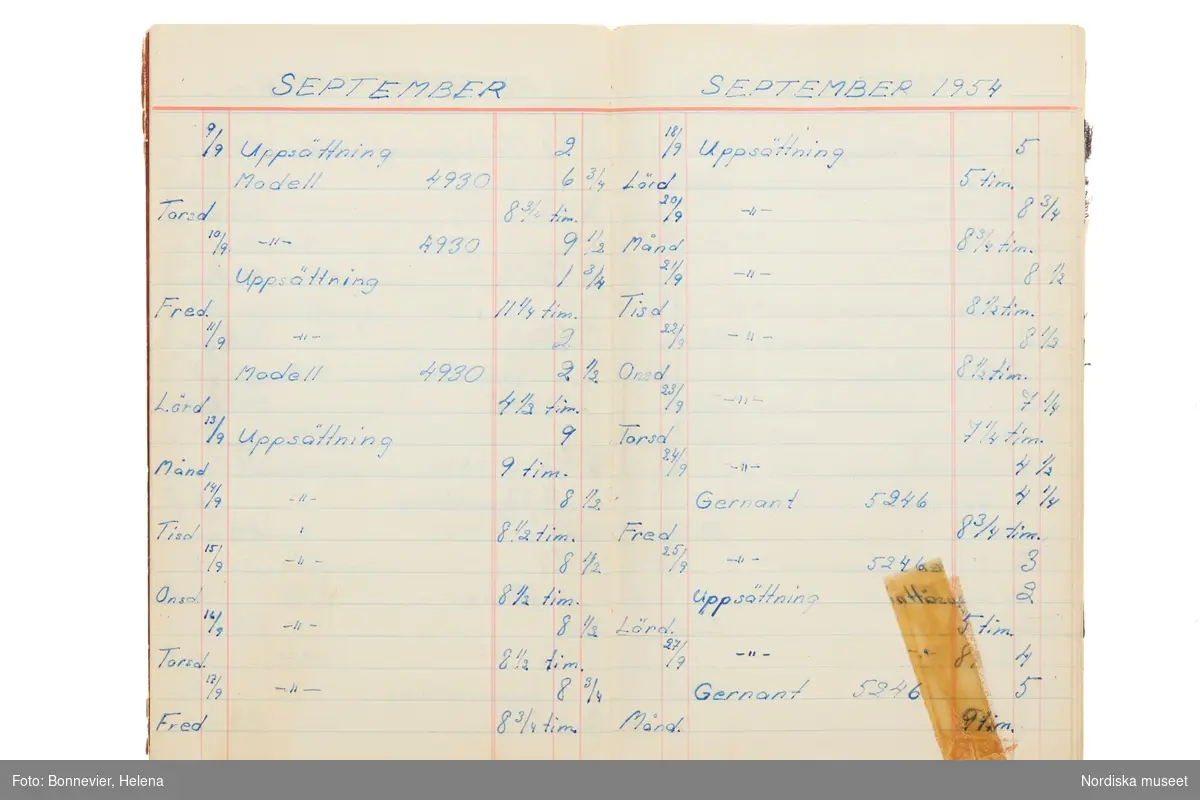 SEPTEMBER
9/9 Uppsättning 2
Modell 4930 6 3/4
Torsd 8 3/4 tim.
10/9 -"- 4930 9 1/2
Uppsättning 1 3/4
Fred. 11 1/4 tim.
11/9 -"- 2
Modell 4930 2 1/2
Lörd 4 1/2 tim.
13/9 Uppsättning 9
Månd 9 tim.
14/9 -"- 8 1/2
Tisd 8 1/2 tim.
15/9 -"- 8 1/2
Onsd. 8 1/2 tim.
16/9 -"- 8 1/2
Torsd. 8 1/2 tim.
17/9 -"- 8 3/4
Fred 8 3/4 tim.
SEPTEMBER 1954
18/9 Uppsättning 5
Lörd 5 tim.
20/9 -"- 8 3/4
Månd 8 3/4 tim.
21/9 -"- 8 1/2
Tisd 8 1/2 tim.
22/9 -"- 8 1/2
Onsd 8 1/2 tim.
23/9 -"- 7 1/4
Torsd 7 1/4 tim.
24/9 -"- 4 1/2
Gernant 5246 4 1/4
Fred 8 3/4 tim.
25/9 -"- 5246 3
Uppsättning 2
Lörd. 5 tim.
27/9 -"- 4
Gernant 5246 5
Månd. 9 tim.
Foto: Bonnevier, Helena
Nordiska museet